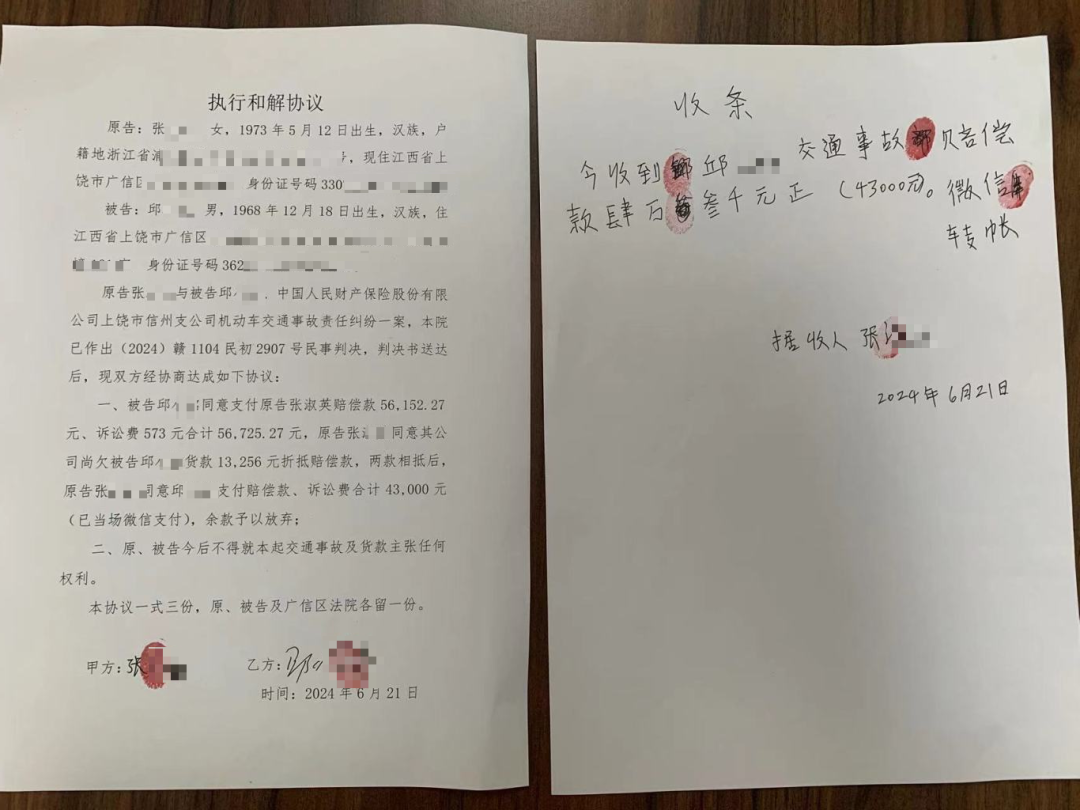 执行和解协议
原告：张 女，1973年5月12日出生，汉族，户
籍地浙江省浦 号，现住江西省上
饶市广信区 身份证号码330
被告：邱 男，1968年12月18日出生，汉族，住
江西省上饶市广信区
身份证号码362
原告张 与被告邱 、中国人民财产保险股份有限
公司上饶市信州支公司机动车交通事故责任纠纷一案，本院
已作出（2024）赣1104民初2907号民事判决，判决书送达
后，现双方经协商达成如下协议：
一、被告邱 同意支付原告张淑英赔偿款56,152.27
元、诉讼费573元合计56,725.27元，原告张 同意其公
司尚欠被告邱 货款13,256元折抵赔偿款，两款相抵后，
原告张 同意邱 支付赔偿款、诉讼费合计43,000元
（已当场微信支付），余款予以放弃；
二、原、被告今后不得就本起交通事故及货款主张任何
权利。
本协议一式三份，原、被告及广信区法院各留一份。
甲方：张 乙方：邱
时间：2024年6月21日
收条
今收到 邱 交通事故 赔偿
款肆万 叁千元正（43000元）。微信
转帐
接收人 张
2024年6月21日